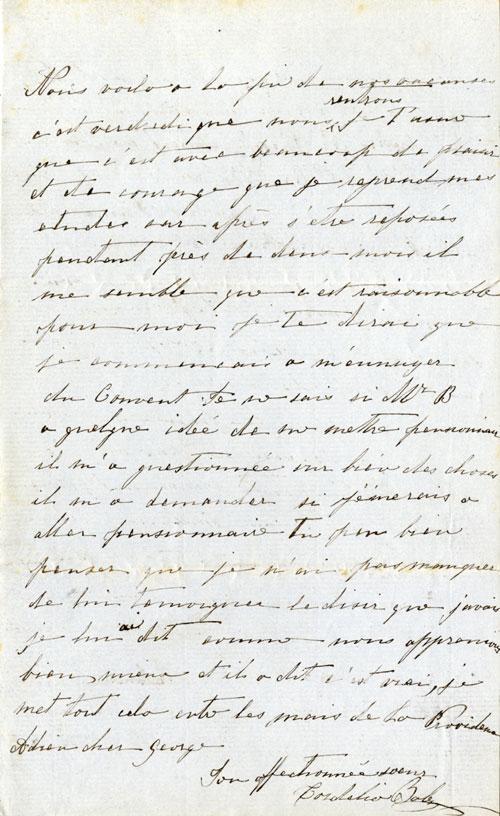 Nous voila a la fin de nos vacanses
c'est vendredi que nous rentrons je t'asure
que c'est avec beaucoup de plaisir
et de courage que je reprend mes
etudes car après s'être reposées
pendant près de deux mois il
me semble que c'est raisonnable
pour moi je te dirai que
je commencais a m'ennuyer
du Couvent Je ne sais si Mr B
a quelque idée de me mettre pensionnaire
il m'a questionnée sur bien des choses
il m'a demander si j'émerais a
aller pensionnaire tu peu bien
penser que je n'ai pas manquée
de lui temoigner le disir que javais
je lui ai dit comme nous apprenions
bien mieux et il a dit c'est vrai, je
met tout cela entre les mais de la Providence
Adieu cher George
Ton affectionnée soeur
Cordelia